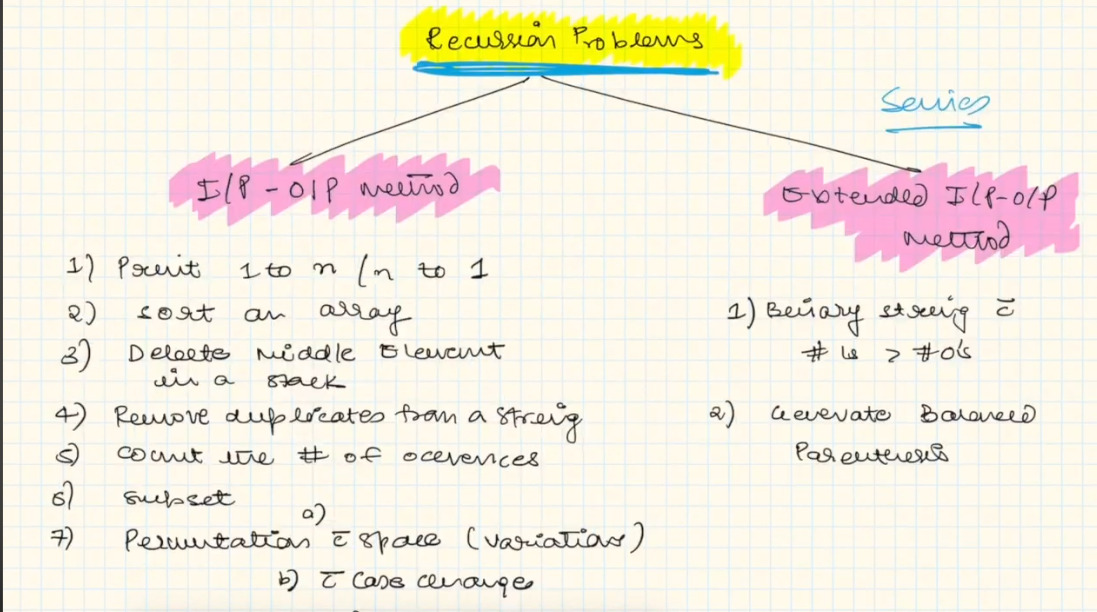 Recursion Problems
Series
I/P - O/P method
Extended I/P-O/P
method
1) Print 1 to n / n to 1
2) sort an array
3) Delete Middle Element
in a stack
4) Remove duplicates from a string
5) count the # of occurences
6) subset
7) Permutation c̄ space (variation)
a)
b) c̄ case change
1) Binary string c̄
# 1s > #0's
2) Generate Balanced
Parenthesis